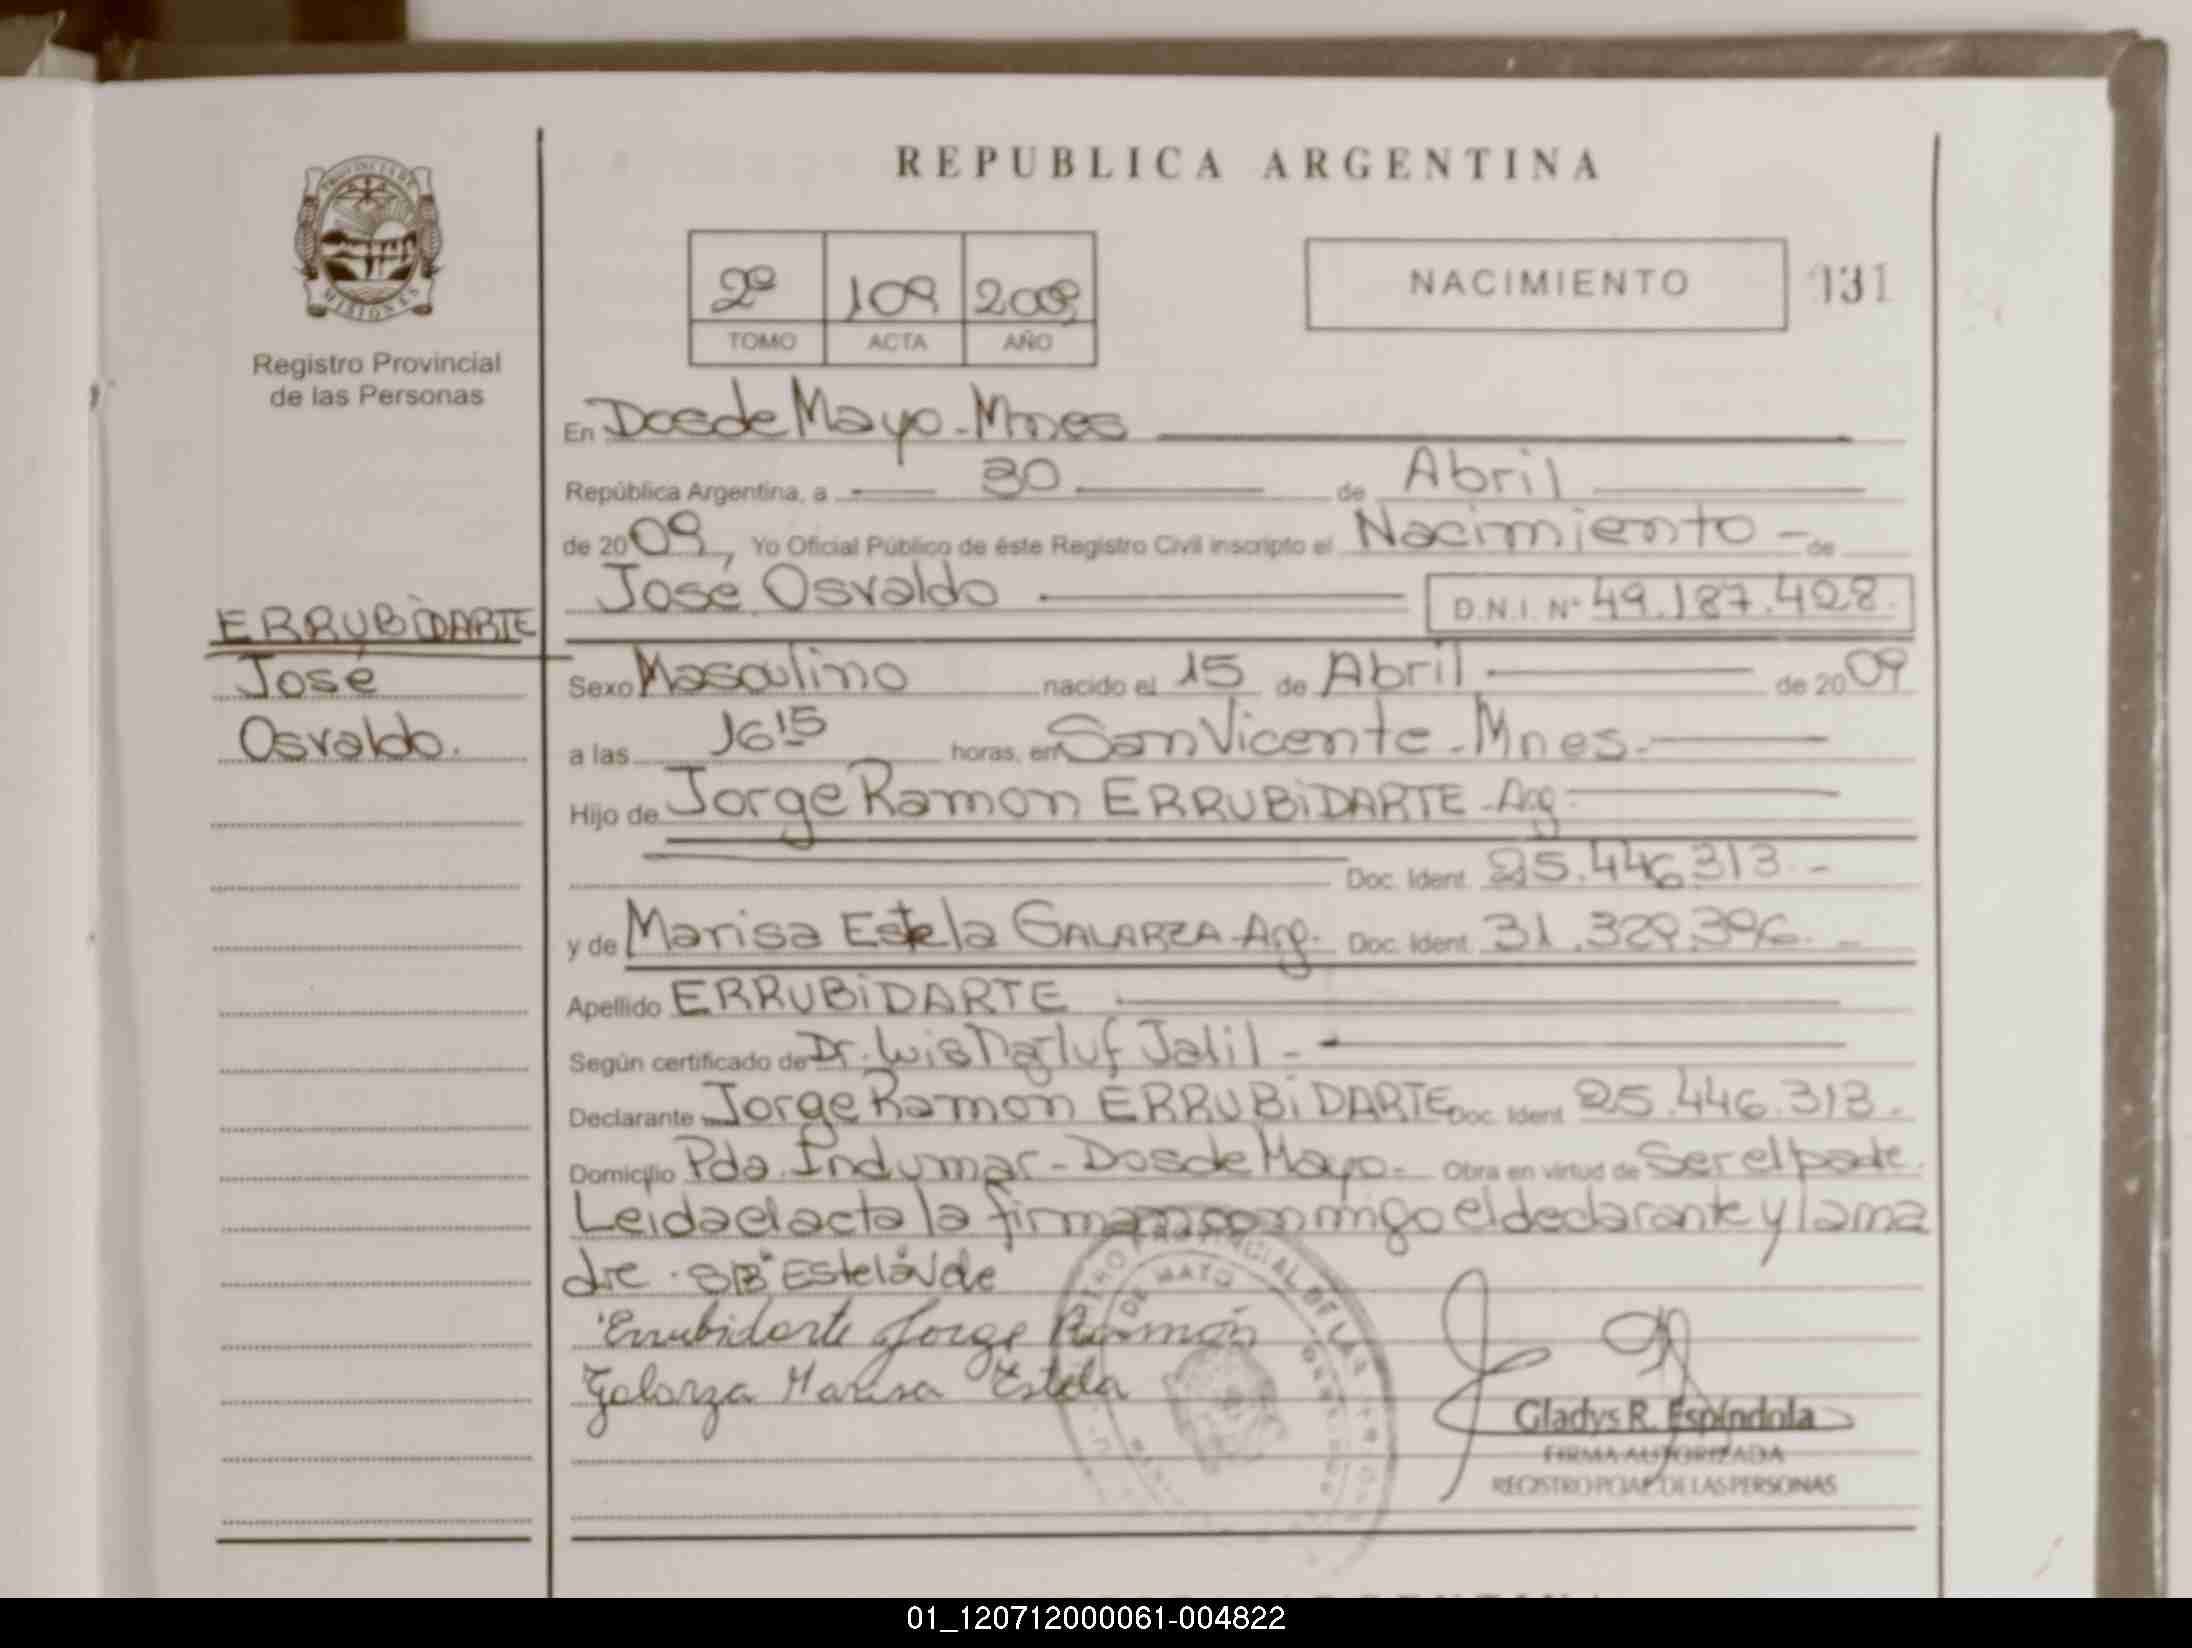 REPUBLICA ARGENTINA
PROVINCIA DE
MISIONES
Registro Provincial
de las Personas
2º 109 2009
TOMO ACTA AÑO
NACIMIENTO
131
En Dos de Mayo - Mnes
República Argentina, a 30 de Abril
de 2009, Yo Oficial Público de éste Registro Civil inscripto el Nacimiento - de
José Osvaldo D.N.I. Nº 49.187.428.
ERRUBiDARTE
José
Osvaldo.
Sexo Masculino nacido el 15 de Abril de 2009
a las 16 15 horas, en San Vicente - Mnes.
Hijo de Jorge Ramon ERRUBiDARTE - Arg
Doc. Ident. 25.446.313 -
y de Marisa Estela GALARZA - Arg. Doc. Ident. 31.329.396. -
Apellido ERRUBiDARTE
Según certificado de Dr. Luis Jalil -
Declarante Jorge Ramon ERRUBiDARTE Doc. Ident. 25.446.313.
Domicilio Pda. Indumar - Dos de Mayo. Obra en virtud de Ser el padre.
Leida el acta la firman conmigo el declarante y la ma
dre. "Estela Vale
Errubidarte Jorge Ramón
Galarza Marisa Estela
DE MAYO
Gladys R. Espíndola
FIRMA AUTORIZADA
REGISTRO PCIAL DE LAS PERSONAS
01_120712000061-004822